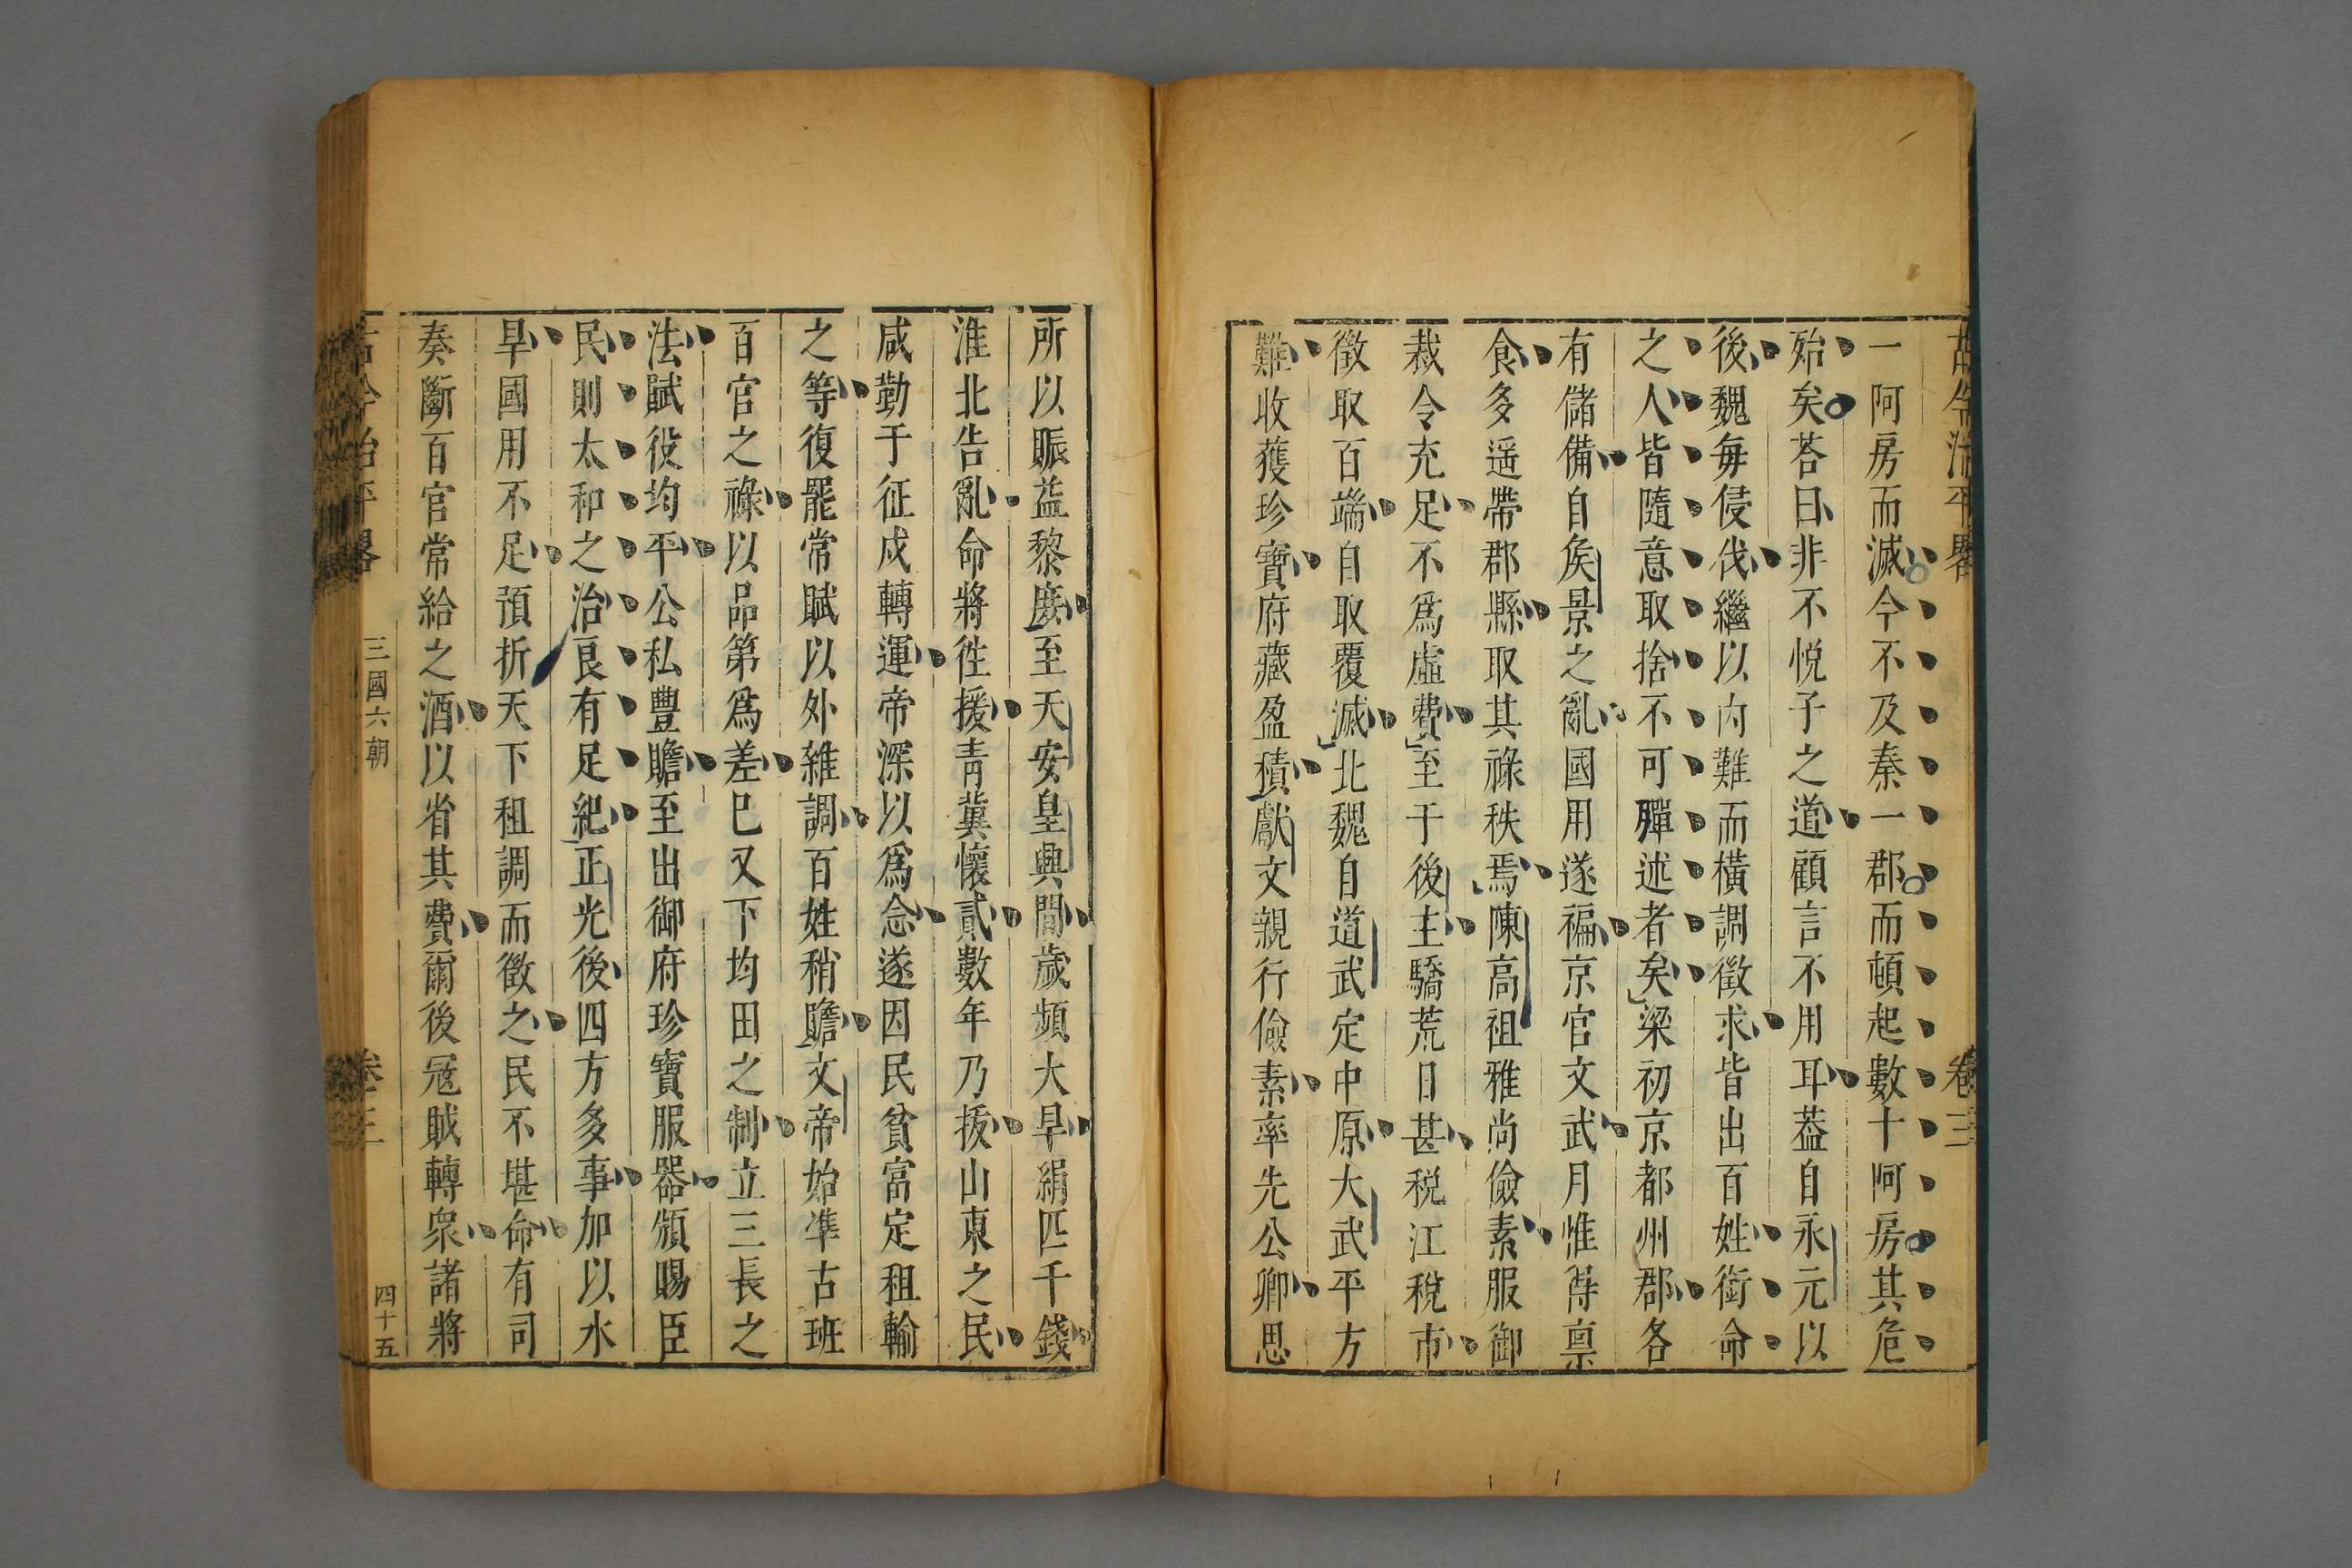 古今治平畧 卷三
一阿房而滅今不及秦一郡而頓起數十阿房其危
殆矣荅曰非不悅子之道顧言不用耳葢自永元以
後魏每侵伐繼以內難而橫調徵求皆出百姓銜命
之人皆隨意取捨不可殫述者矣梁初京都州郡各
有儲備自矦景之亂國用遂褊京官文武月惟得禀
食多遥帶郡縣取其祿秩焉陳高祖雅尚儉素服御
裁令充足不爲虛費至于後主驕荒日甚税江稅市
徵取百端自取覆滅北魏自道武定中原大武平方
難收獲珍寶府藏盈積獻文親行儉素率先公卿思
所以賑益黎庶至天安皇興間歲頻大旱絹匹千錢
淮北告亂命將徃援青冀懷貳數年乃拔山東之民
咸勤于征戍轉運帝深以爲念遂因民貧富定租輸
之等復罷常賦以外雜調百姓稍贍文帝始準古班
百官之祿以品第爲差已又下均田之制立三長之
法賦役均平公私豐贍至出御府珍寶服器頒賜臣
民則太和之治良有足紀正光後四方多事加以水
旱國用不足預折天下租調而徵之民不堪命有司
奏斷百官常給之酒以省其費爾後冦賊轉衆諸將
古今治平畧 三國六朝 卷三 四十五